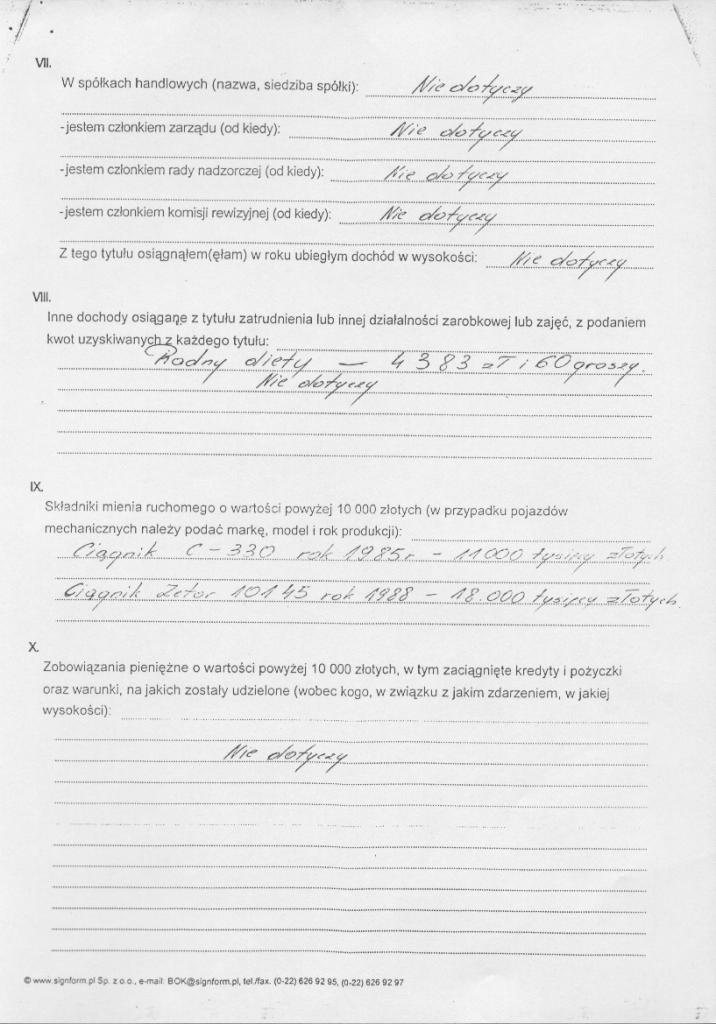 VII.
W spółkach handlowych (nazwa, siedziba spółki): Nie dotyczy
-jestem członkiem zarządu (od kiedy): Nie dotyczy
-jestem członkiem rady nadzorczej (od kiedy): Nie dotyczy
-jestem członkiem komisji rewizyjnej (od kiedy): Nie dotyczy
Z tego tytułu osiągnąłem(ęłam) w roku ubiegłym dochód w wysokości: Nie dotyczy
VIII.
Inne dochody osiągane z tytułu zatrudnienia lub innej działalności zarobkowej lub zajęć, z podaniem
kwot uzyskiwanych z każdego tytułu:
Radny diety — 4383 zł i 60 groszy.
Nie dotyczy
IX.
Składniki mienia ruchomego o wartości powyżej 10 000 złotych (w przypadku pojazdów
mechanicznych należy podać markę, model i rok produkcji):
Ciągnik C-330 rok 1985r - 11000 tysięcy złotych
Ciągnik Zetor 10145 rok 1988 - 18.000 tysięcy złotych.
X.
Zobowiązania pieniężne o wartości powyżej 10 000 złotych, w tym zaciągnięte kredyty i pożyczki
oraz warunki, na jakich zostały udzielone (wobec kogo, w związku z jakim zdarzeniem, w jakiej
wysokości):
Nie dotyczy
© www.signform.pl Sp. z o.o., e-mail: BOK@signform.pl, tel./fax. (0-22) 626 92 95, (0-22) 626 92 97